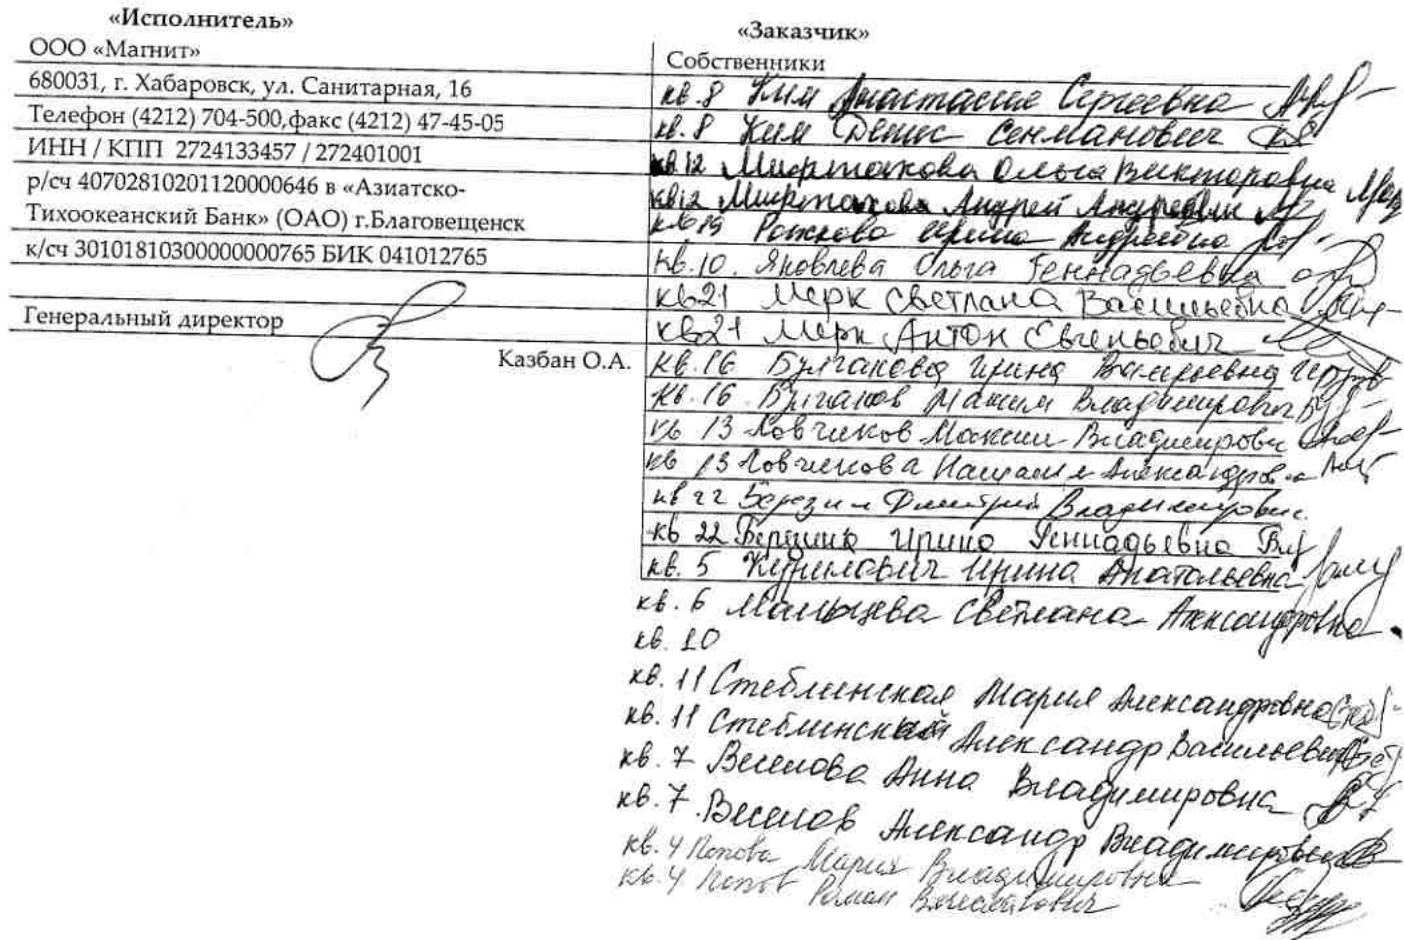 «Исполнитель»
ООО «Магнит»
680031, г. Хабаровск, ул. Санитарная, 16
Телефон (4212) 704-500,факс (4212) 47-45-05
ИНН / КПП 2724133457 / 272401001
р/сч 40702810201120000646 в «Азиатско-
Тихоокеанский Банк» (ОАО) г.Благовещенск
к/сч 30101810300000000765 БИК 041012765
Генеральный директор
Казбан О.А.
«Заказчик»
Собственники
кв.8 Ким Анастасия Сергеевна
кв.8 Ким Денис Сенманович
кв12 Ольга Викторовна
кв12 Андрей Андреевич
кв19 Рожкова Ирина Андреевна
кв.10. Яковлева Ольга Геннадьевна
кв21 Мерк Светлана Васильевна
кв21 Мерк Антон Евгеньевич
кв.16 Булгакова Ирина Валерьевна
кв.16 Булгаков Максим Владимирович
кв 13 Ловчиков Максим Владимирович
кв 13 Ловчикова Наталья Александровна
кв 22 Березин Дмитрий Владимирович
кв 22 Березина Ирина Геннадьевна
кв. 5 Курилович Ирина Анатольевна
кв. 6 Мальцева Светлана Александровна
кв. 10
кв. 11 Стеблинская Мария Александровна
кв. 11 Стеблинский Александр Васильевич
кв. 7 Веселова Анна Владимировна
кв. 7 Веселов Александр Владимирович
кв. 4 Попова Мария Владимировна
кв. 4 Попов Роман Вячеславович